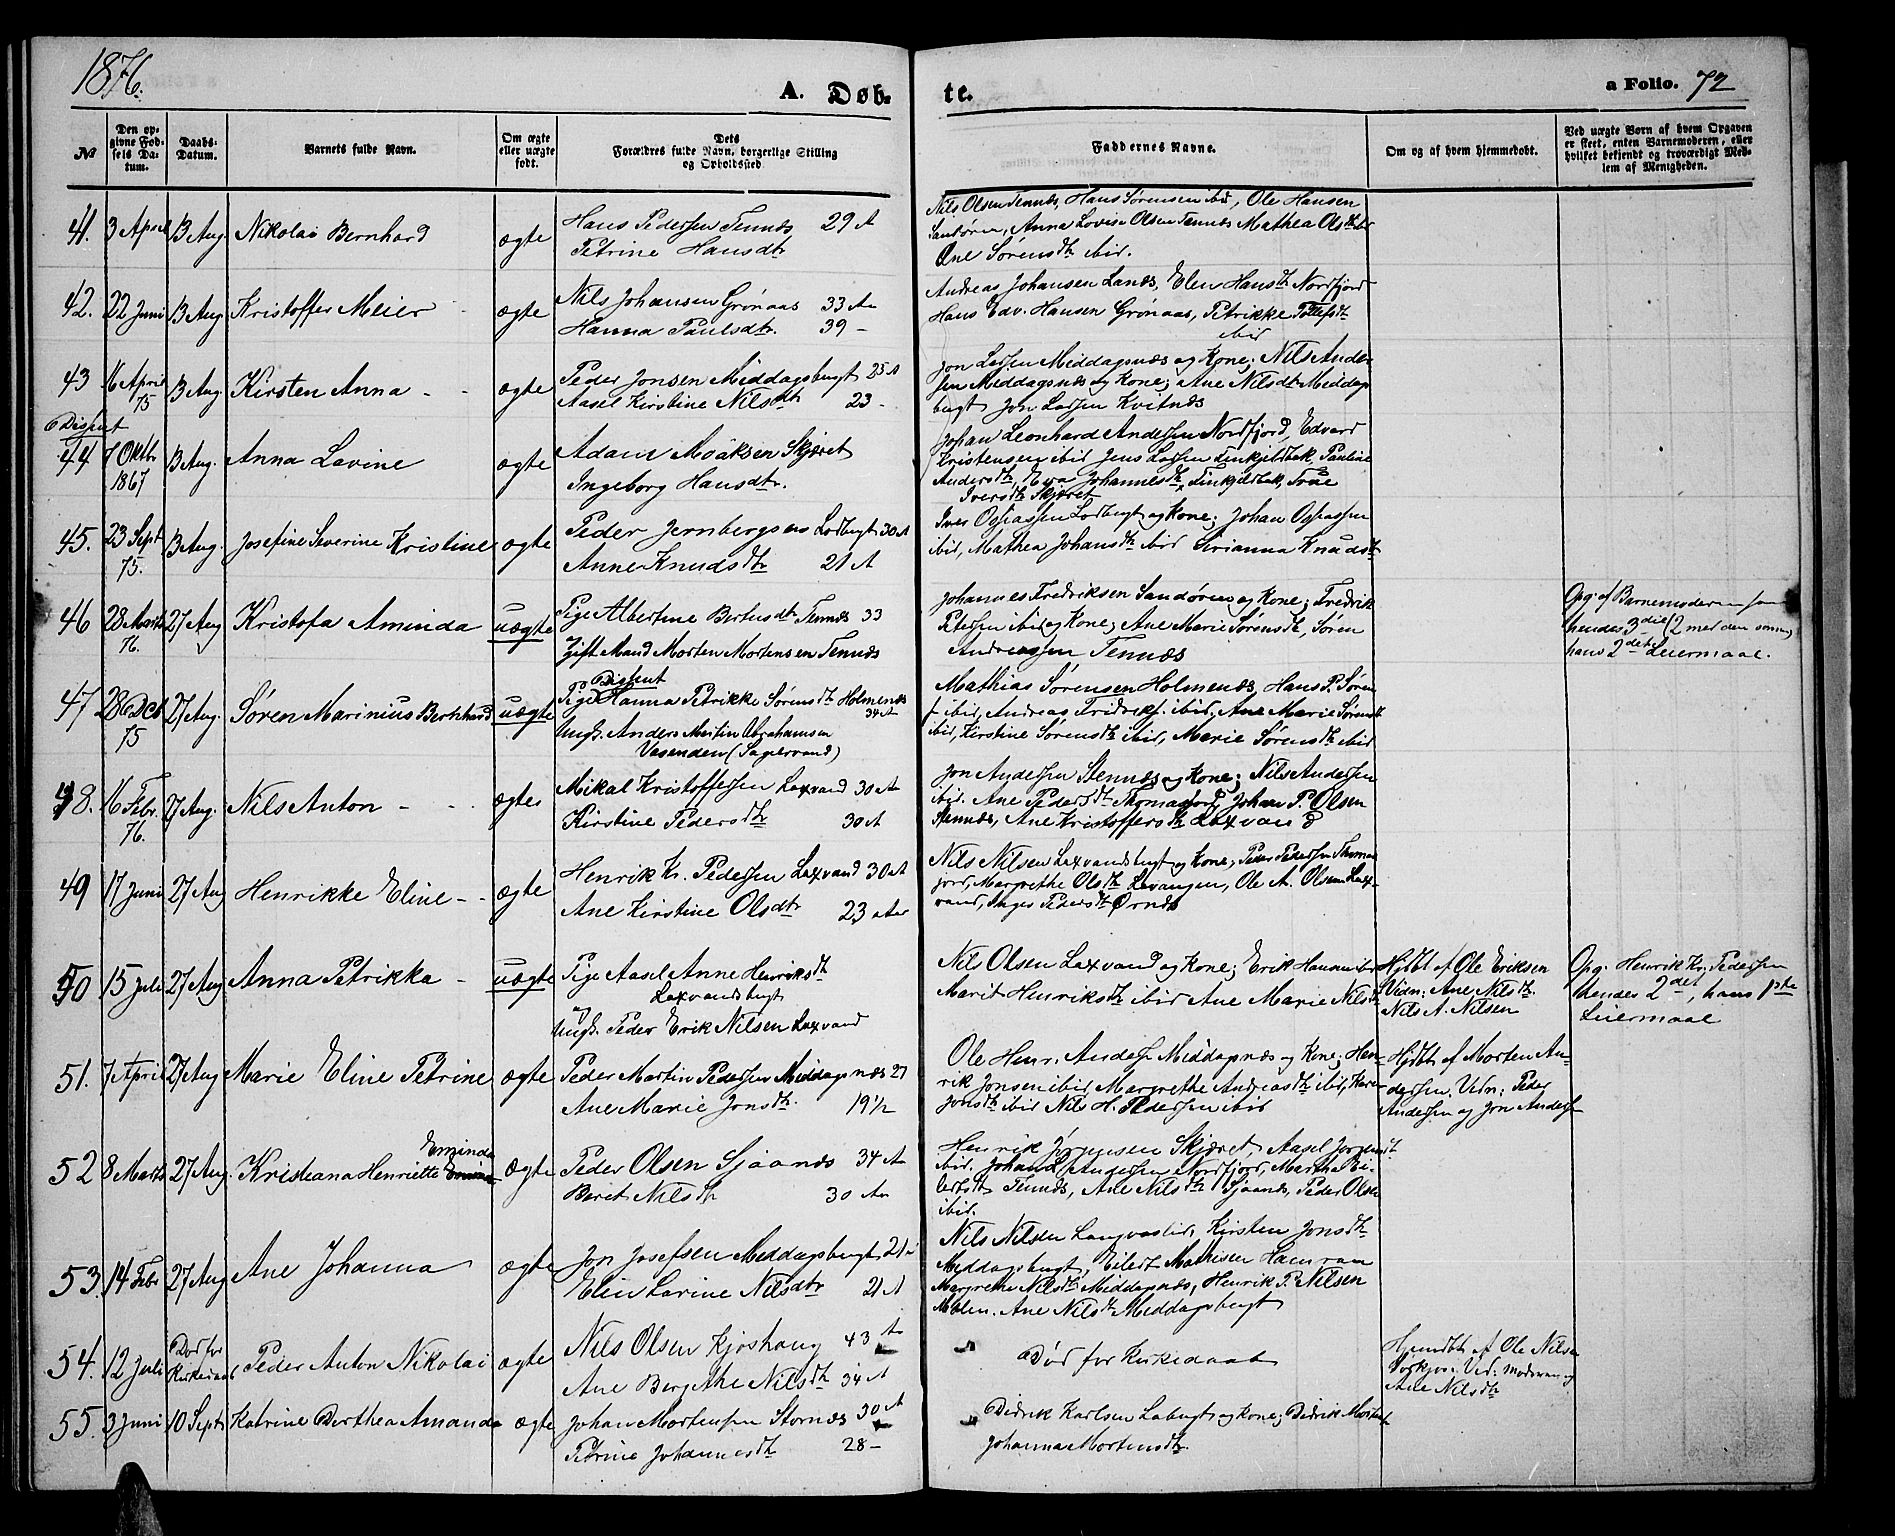 1876.
A. Døb-
te.
a Folio. 72
№
Den op-
givne Fød-
sels Da-
tum.
Daabs-
Datum.
Barnets fulde Navn.
Om ægte
eller uægte
født.
Dets
Forældres fulde Navn, borgerlige Stilling
og Opholdssted.
Faddernes Navne.
Om og af hvem hjemmedøbt.
Ved uægte Børn af hvem Opgaven
er skeet, enten Barnemoderen, eller
hvilket bekjendt og troværdigt Med-
lem af Menigheden.
41. 3 April 13 Aug. Nikolai Bernhard ægte
Hans Pedersen Tennes 29 A
Petrine Hansdtr
Nils Olsen Tennes, Hans Sørensen ibid, Ole Hansen
Sandøren, Anna Lovise Olsen Tennes Mathea Olsdtr ibid
Ane Sørensdtr ibid.
42. 22 Juni 13 Aug Kristoffer Meier ægte
Nils Johansen Grønaas 33 Ar
Hanna Paulsdtr. 39 -
Andreas Johansen Lanes, Elen Hansdtr Nordfjord
Hans Edv. Hansen Grønaas, Petrikke
ibid
43 16 April 75 13 Aug. Kirsten Anna - - ægte
Peder Jonsen Middagsbugt 25 A
Aasel Kirstine Nilsdtr 23 -
Jon Larsen Middagsnæs og Kone; Nils Ander
sen Middagsnæs og Kone; Ane Nilsdtr Middags
bugt Jon Larsen Kvitnæs
6 Dissent
44 7 Oktbr 1867 13 Aug. Anna Lavine ægte
Adam Moaksen Skjæret
Ingeborg Hansdtr.
Johan Leonhard Andersen Nordfjord, Edvard
Kristensen ibid Jens Larsen Finkjeldbak, Pauline
Andersdtr, Eva Johannesdtr Finkjeldbak,
Iversdtr Skjæret
45. 23 Sept 75. 13 Aug. Josefine Severine Kristine ægte
Peder Jernbergsen Lodbugt 30 A
Anne Knudsdtr 21 A
Iver Ospassen Lodbugt og Kone; Johan Ospassen
ibid, Mathea Johansdtr ibid Sirianna Knudsdtr
46 28 Marts 76. 27 Aug Kristofa Aminda uægte
Pige Albertine Bertusdtr Tennes 33
Gift Mand Morten Mortensen Tennes
Johannes Fredriksen Sandøren og Kone; Fredrik
Petersen ibid og Kone; Ane Marie Sørensdtr, Søren
Andreassen Tennæs
Opg. af Barnemoderen som
hendes 3die (2 med den samme)
hans 2det Leiermaal.
47 28 Oct 75 27 Aug. Søren Marinius Bernhard uægte
Dissent
Pige Hanna Petrikke Sørensdtr Holmenæs
34 Ar
Ungk. Anders Martin Abrahamsen
Vasenden (Sagervand)
Mathias Sørensen Holmenæs, Hans P. Søren
s. ibid, Andreas Fridriks. ibid, Ane Marie Sørensdtr
ibid, Kirstine Sørensdtr ibid, Marie Sørensdtr ibid
48. 16 Febr. 76. 27 Aug. Nils Anton - - - ægte
Mikal Kristoffersen Laxvand 30 Ar
Kirstine Pedersdtr 30 A
Jon Andersen Stennæs og Kone; Nils Andersen
ibid. Ane Pedersdtr Thomasjord, Johan P. Olsen
Stennæs, Ane Kristoffersdtr Laxvand
49 17 Juni 27 Aug Henrikke Eline - - ægte
Henrik Kr. Pedersen Laxvand 30 Ar
Ane Kirstine Olsdtr 23 Aar
Nils Nilsen Laxvandsbugt og Kone, Peder Pedersen Thomas
jord, Margrethe Olsdtr Lavangen, Ole A. Olsen Lax-
vand, Inger Pedersdtr Ørnæs
50 15 Juli 27 Aug Anna Petrikka - uægte
Pige Aasel Anne Henriksdtr
Laxvandsbugt
og
Ungk. Peder Erik Nilsen Laxvand
Nils Olsen Laxvand og Kone; Erik Hansen ibid
Marit Henriksdtr ibid Ane Marie Nilsdtr
Hjdbt af Ole Eriksen
Vidn: Ane Nilsdtr.
Nils A. Nilsen
Opg. Henrik Kr. Pedersen
hendes 2det, hans 1ste
Leiermaal
51. 7 April 27 Aug Marie Eline Petrine ægte
Peder Martin Pedersen Middagsnæs 27
Ane Marie Jonsdtr. 19 1/2
Ole Henr. Anders. Middagnæs og Kone; Hen-
rik Jonsen ibid Margrethe Andreasdtr ibid, Karen
Jonsdtr ibid Nils H. Pedersen ibid
Hjdbt af Morten An-
dersen. Vidn: Peder
Andersen og Jon Anders.
52 8 Marts 27 Aug. Kristiana Henriette Eminda ægte
Peder Olsen Sjaanæs 34 Ar
Beret Nilsdtr 30 Ar
Henrik Jørgensen Skjæret, Aasel Jørgensdtr
ibid. Johan L. Andersen Nordfjord, Martha Ei-
lertsdtr Tennæs, Ane Nilsdtr Sjaanæs, Peder Olsen
ibid.
53. 14 Febr 27 Aug Ane Johanna ægte
Jon Josefsen Middagsbugt, 21 A
Elen Larine Nilsdtr 21 A
Nils Nilsen Langvaslid, Kirsten Jonsdtr
Middagsbugt, Eilert Mathisen Hamran
Margrethe Nilsdtr Middagsnæs, Henrik P. Nilsen
Molen. Ane Nilsdtr Middagsbugt
54. 12 Juli Død før Kirkedaab Peder Anton Nikolai ægte
Nils Olsen Kjoshaug 43 Ar
Ane Bergithe Nilsdtr 34 A
Død før Kirkedaab
Hjemdbt af Ole Nilsen
Vid: Moderen og
Ane Nilsdtr
55. 3 Juni 10 Septr Katrine Dorthea Amanda ægte
Johan Mortensen Stornæs 30 A
Petrine Johannesdtr 28 -
Didrik Karlsen Labugt og Kone; Didrik
Johanna Mortensdtr.